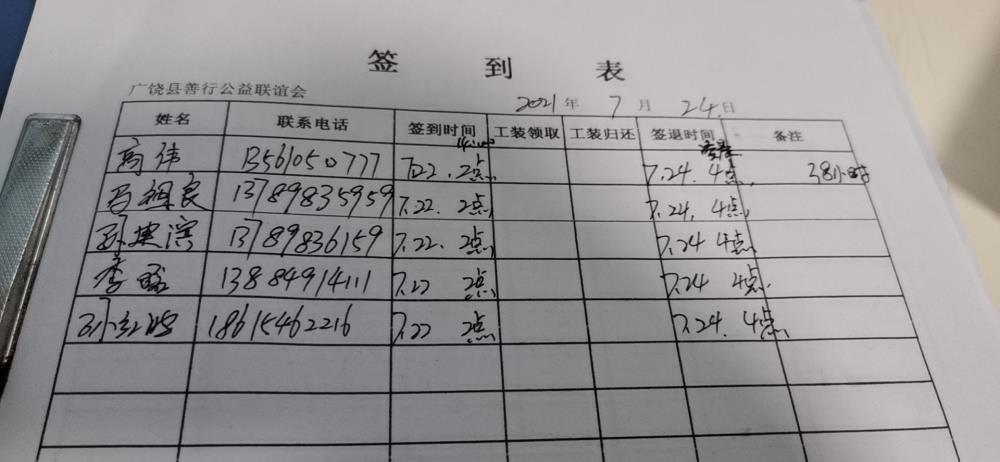 签到表
广饶县善行公益联谊会 2021年7月24日
姓名 联系电话 签到时间 工装领取 工装归还 签退时间 备注
凌晨
高伟 13561050777 7.22.2点 7.24.4点 38小时
13789835959 7.22.2点 7.24.4点
孙建滨 13789836159 7.22.2点 7.24 4点
李 13884914111 7.22 2点 7.24 4点
18615462216 7.22 2点 7.24.4点